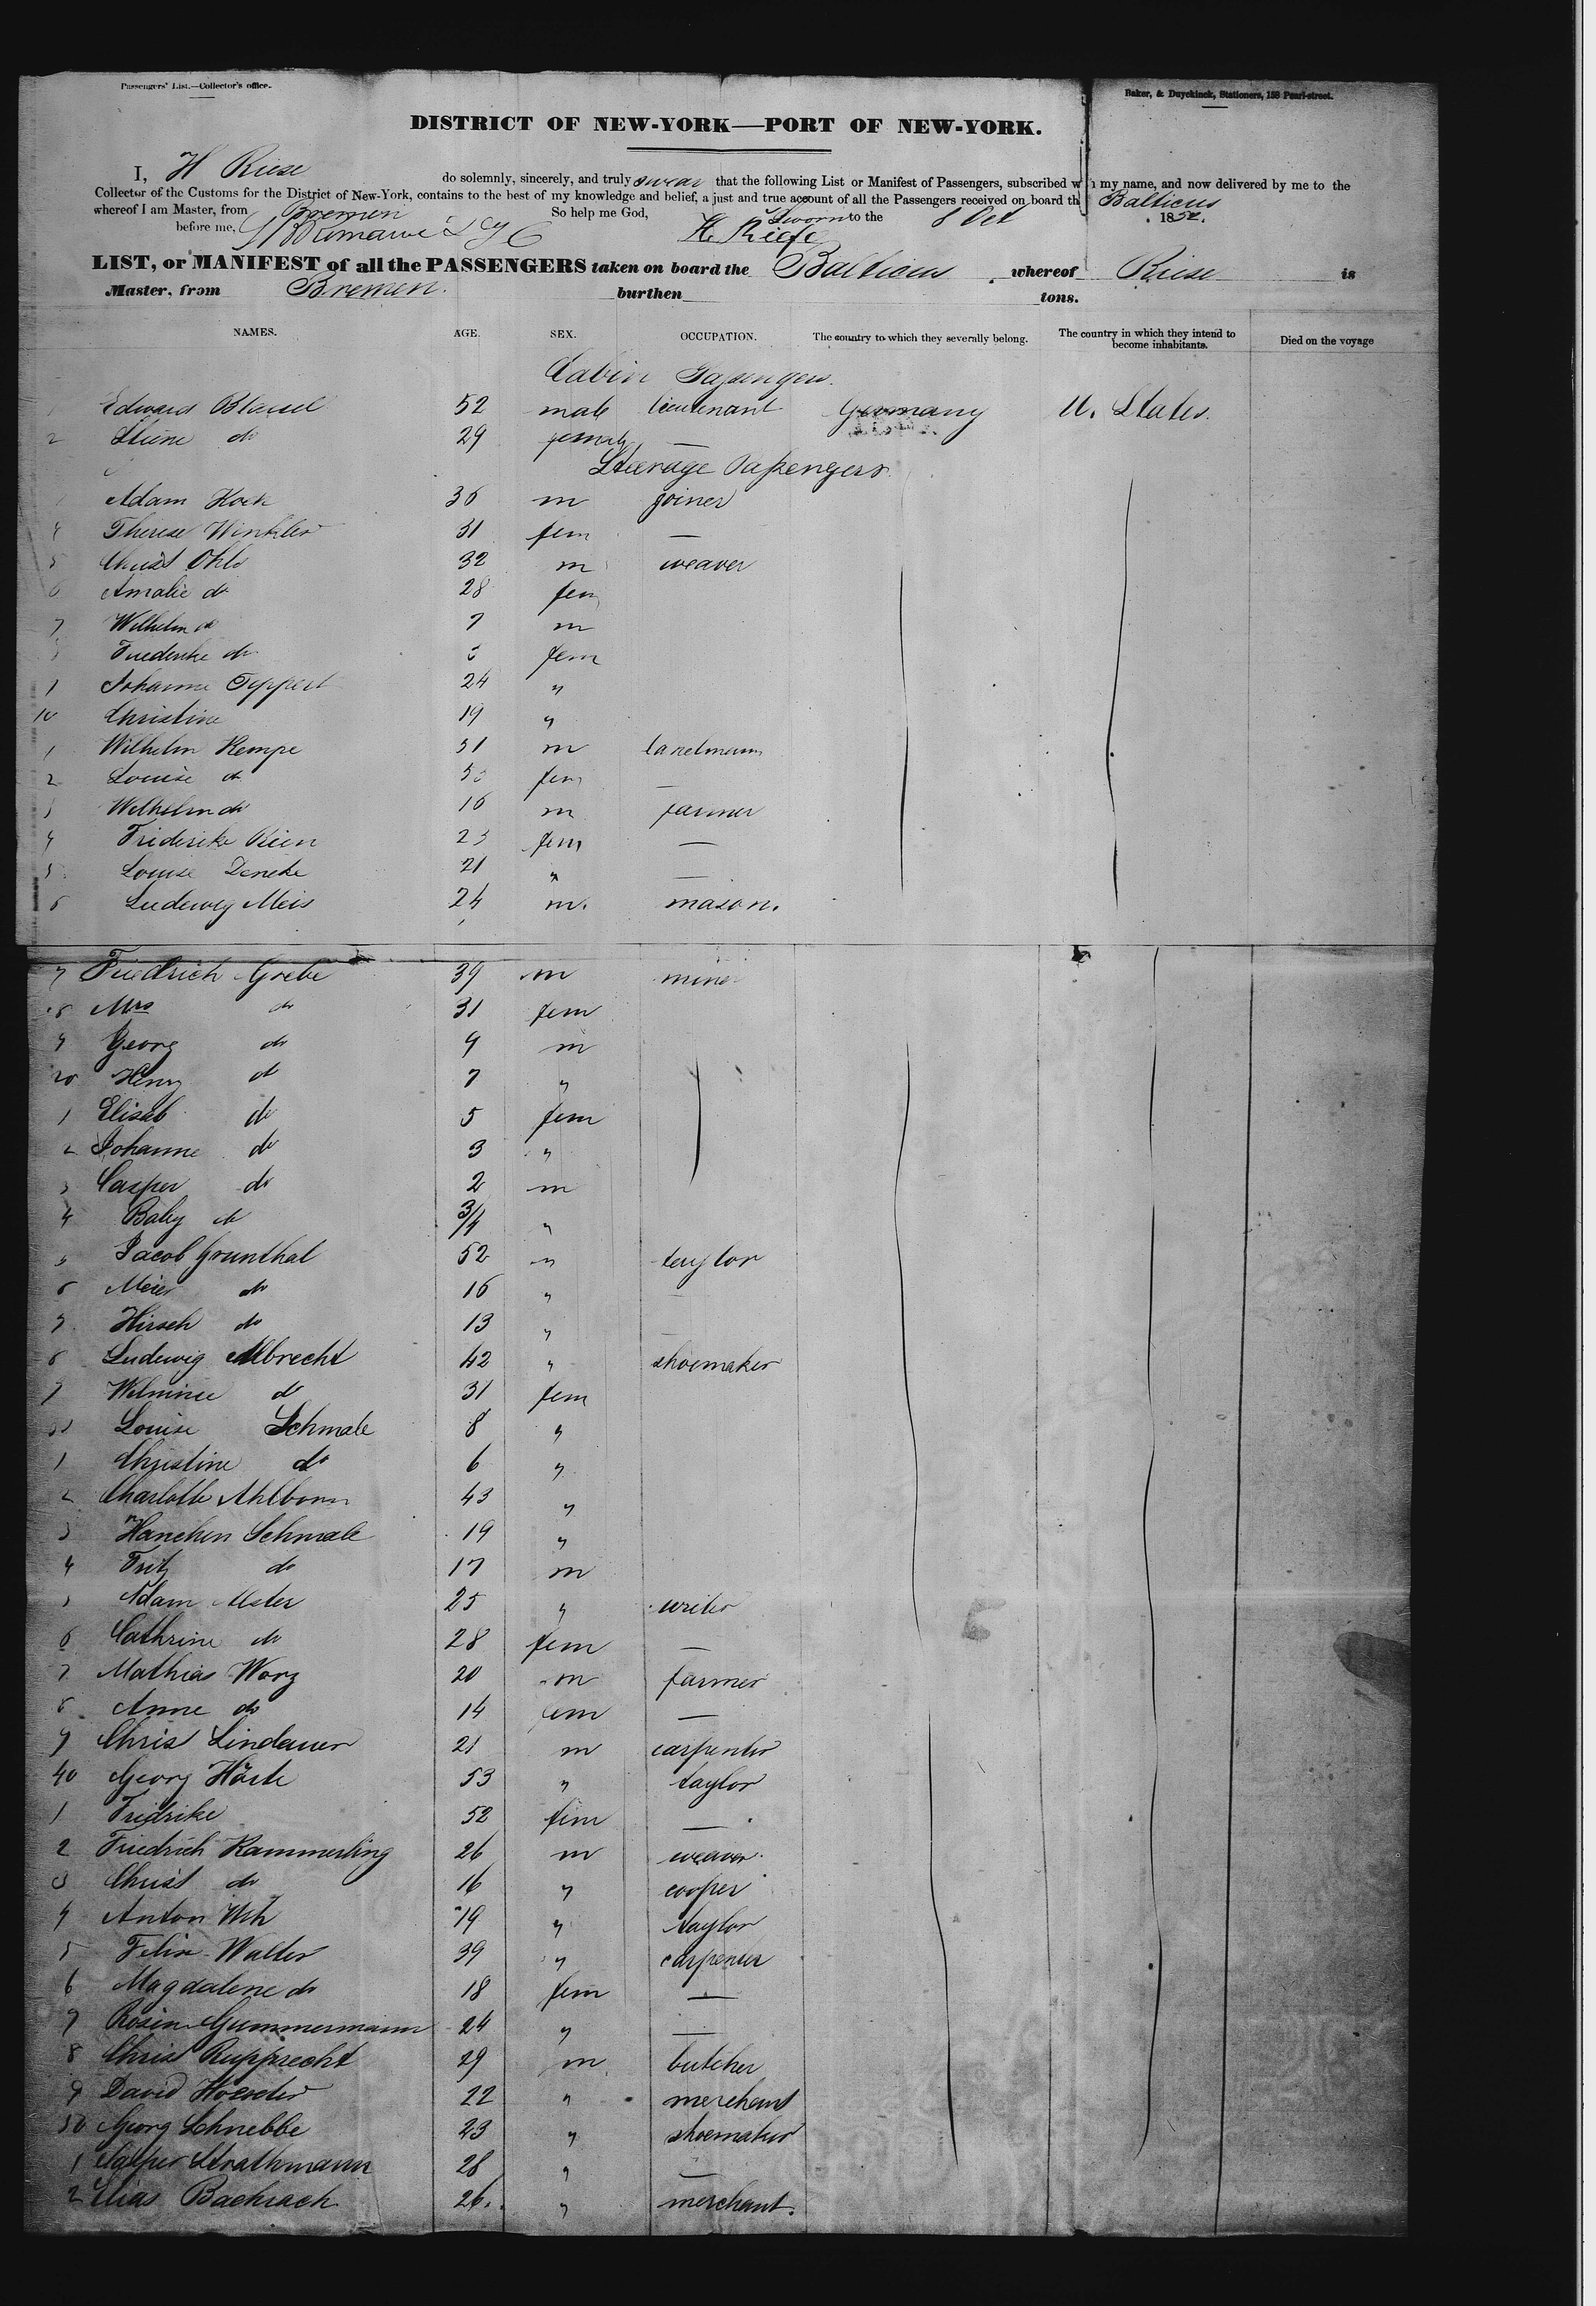 Passengers' List.—Collector's office.
Baker, & Duyckinck, Stationers, 158 Pearl-street.
DISTRICT OF NEW-YORK—PORT OF NEW-YORK.
I, H Riese do solemnly, sincerely, and truly swear that the following List or Manifest of Passengers, subscribed w h my name, and now delivered by me to the
Collector of the Customs for the District of New-York, contains to the best of my knowledge and belief, a just and true account of all the Passengers received on board th Balticus
whereof I am Master, from Bremen So help me God, Sworn to the 8 Oct 185
before me, H. Riese
LIST, or MANIFEST of all the PASSENGERS taken on board the Balticus whereof Riese is
Master, from Bremen. burthen tons.
NAMES. AGE. SEX. OCCUPATION. The country to which they severally belong. The country in which they intend to become inhabitants. Died on the voyage
Cabin Passengers.
Edward 52 male lieutenant Germany U. States.
2 do 29 female —
Steerage Passengers
Adam Kock 36 m joiner
4 Therese Winkler 31 fem —
5 Christ Ohls 32 m weaver
6 Amalie do 28 fem
7 Wilhelm do 7 m
Friederike do fem
Johanne Teppert 24 "
10 Christine 19 "
1 Wilhelm Hempe 51 m landmann
2 Louise do fem —
3 Wilhelm do 16 m farmer
4 Friderike 23 fem —
5 Louise Deneke 21 " —
6 Ludewig Meis 24 m. mason.
7 Friedrich Grebe 39 m miner
8 Mrs do 31 fem
9 Georg do 9 m
20 Henry do 7 "
1 Elisab do 5 fem
2 Johanne do 3 "
3 Casper do 2 m
4 Baby do 3/4 "
5 Jacob Grunthal 52 " taylor
6 Meier do 16 " —
7 Hirsch do 13 " —
8 Ludewig Albrecht 42 " shoemaker
9 Wilmine do 31 fem
30 Louise Schmale 8 "
1 Christine do 6 "
2 Charlotte Ahlborn 43 "
3 Hanchen Schmale 19 "
4 Fritz do 17 m
5 Adam 25 " writer
6 Cathrine do 28 fem —
7 Mathias Worz 20 m farmer
8 Anne do 14 fem —
9 Chris Lindauer 21 m carpenter
40 Georg 53 " taylor
1 Fridrike 52 fem —
2 Friedrich Kammerling 26 m weaver
3 Christ do 16 " cooper
4 Anton 19 " taylor
5 Felix Walter 39 " carpenter
6 Magdalene do 18 fem —
7 Rosine Gummermann 24 " —
8 Christ Rupprecht 29 m butcher
9 David 22 " merchant
50 Georg Schnebbe 23 " shoemaker
1 Casper Strathmann 28 " —
2 Elias Bachrach 26. " merchant.